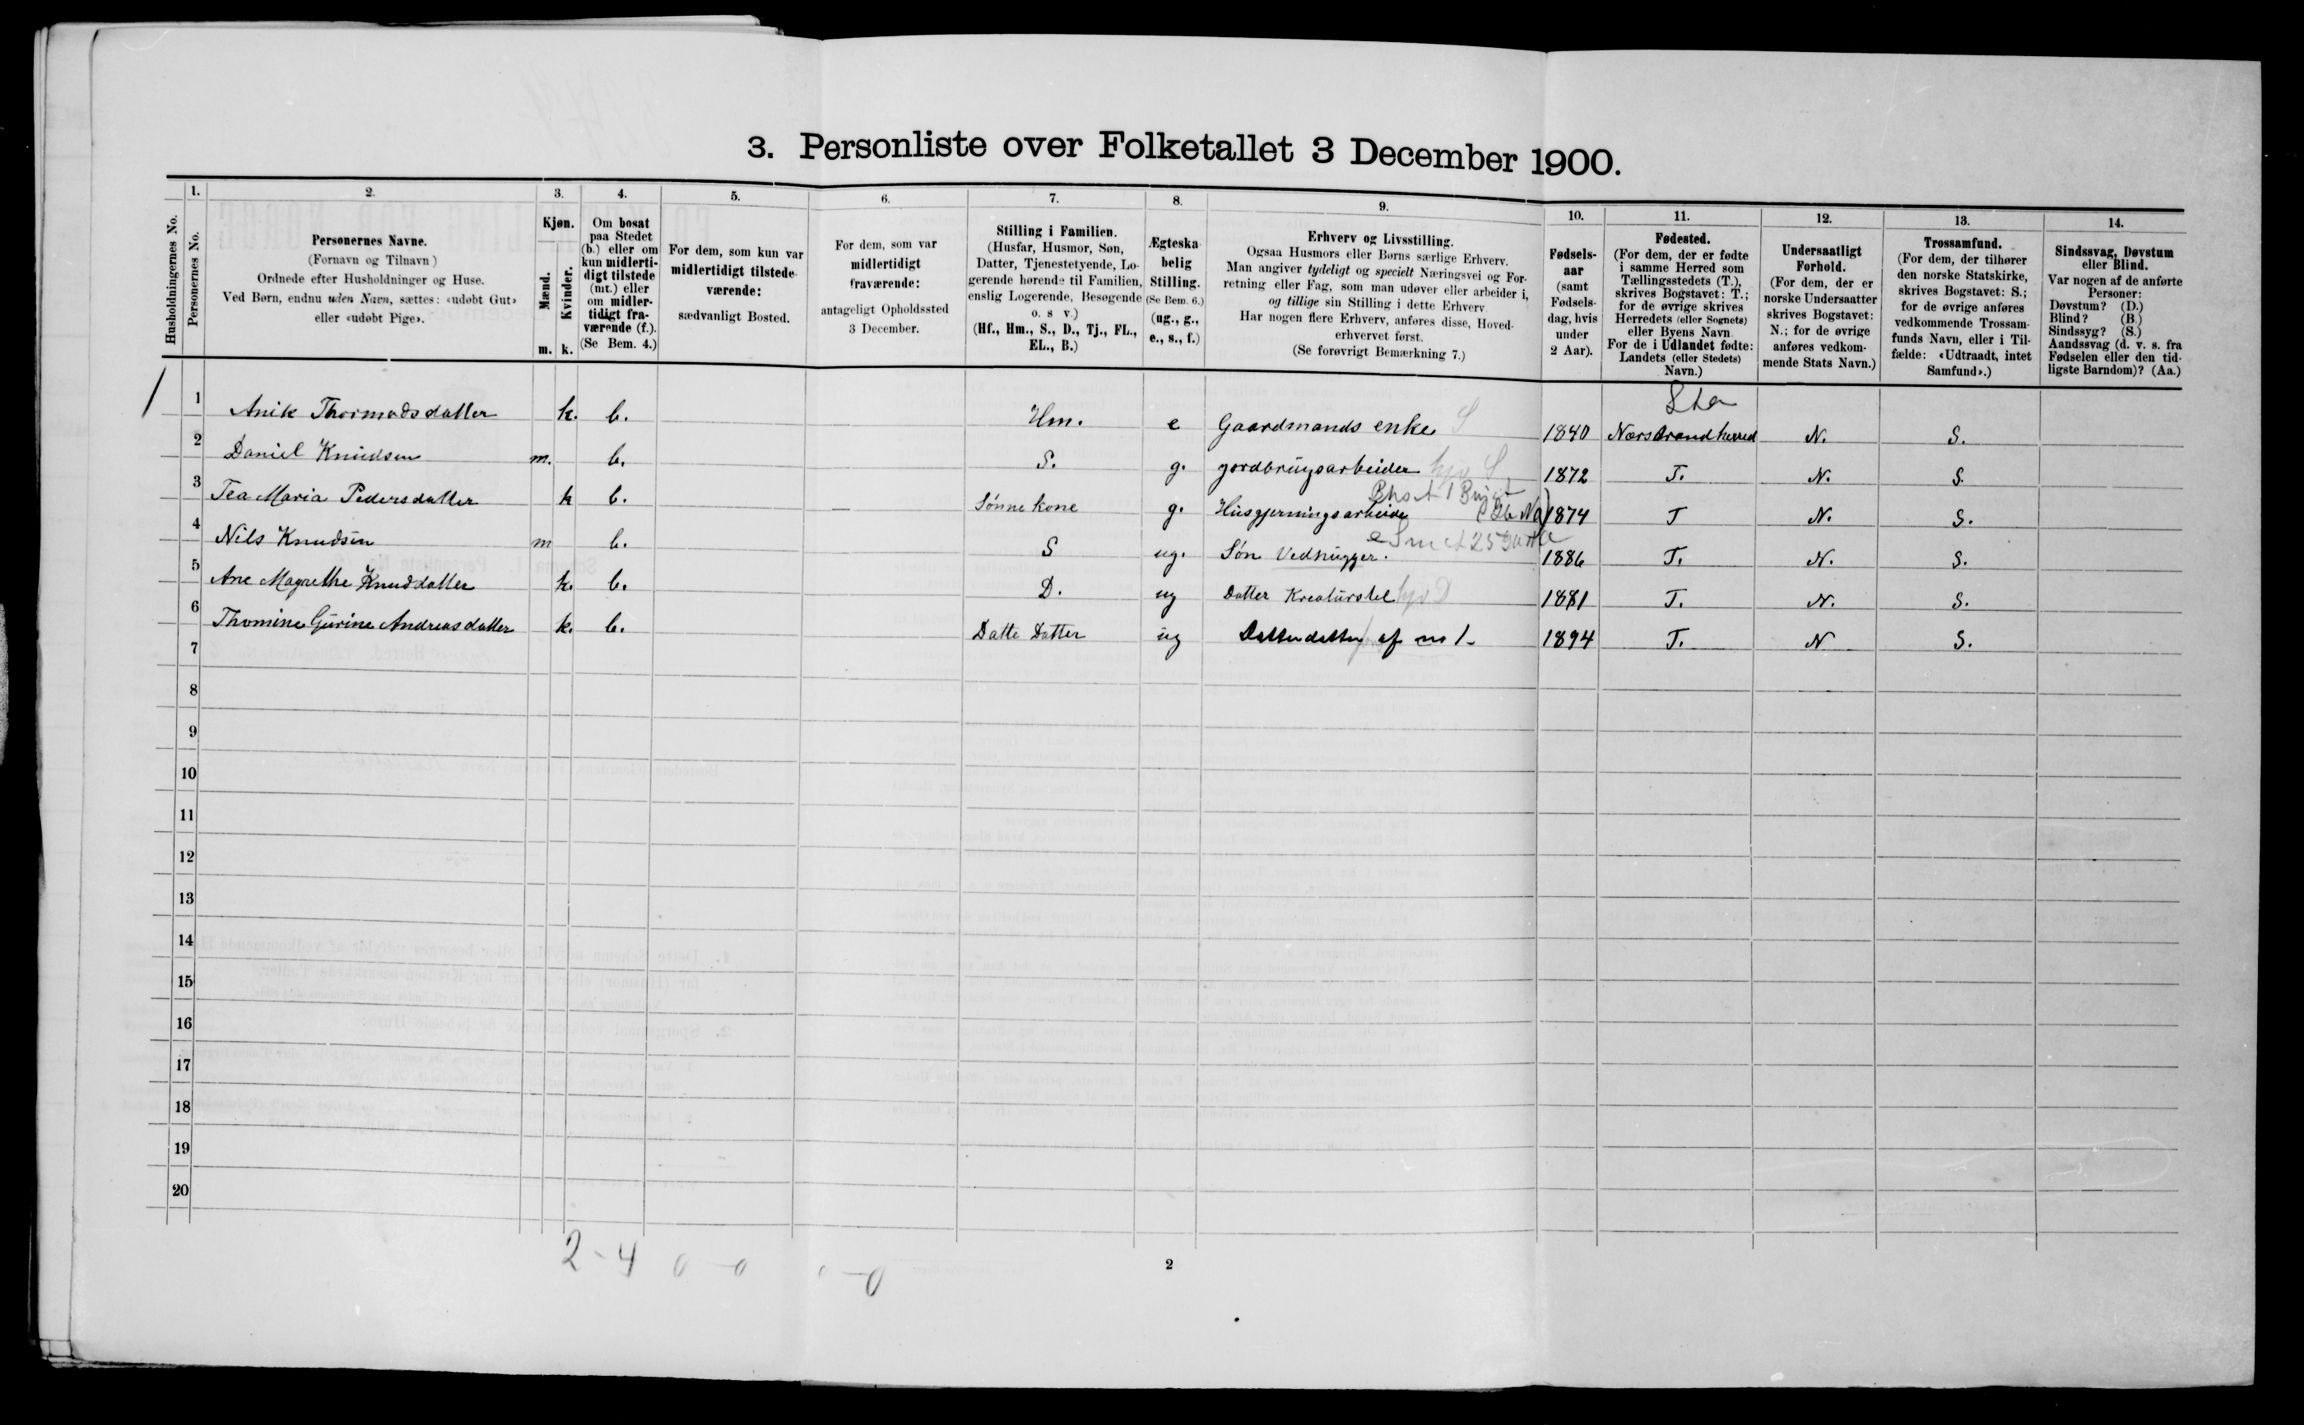 3. Personliste over Folketallet 3 December 1900.
Husholdningernes No.
1.
Personernes No.
2.
Personernes Navne.
(Fornavn og Tilnavn)
Ordnede efter Husholdninger og Huse.
Ved Børn, endnu uden Navn, sættes: «udøbt Gut»
eller «udøbt Pige».
3.
Kjøn.
Mænd.
Kvinder.
m. k.
4.
Om bosat
paa Stedet
(b.) eller om
kun midlerti-
digt tilstede
(mt.) eller
om midler-
tidigt fra-
værende (f.).
(Se Bem. 4.)
5.
For dem, som kun var
midlertidigt tilstede-
værende:
sædvanligt Bosted.
6.
For dem, som var
midlertidigt
fraværende:
antageligt Opholdssted
3 December.
7.
Stilling i Familien.
(Husfar, Husmor, Søn,
Datter, Tjenestetyende, Lo-
gerende hørende til Familien,
enslig Logerende, Besøgende
o. s v.)
(Hf., Hm., S., D., Tj., FL.,
EL., B.)
8.
Ægteska-
belig
Stilling.
(Se Bem. 6.)
(ug., g.,
e., s., f.)
9.
Erhverv og Livsstilling.
Ogsaa Husmors eller Børns særlige Erhverv.
Man angiver tydeligt og specielt Næringsvei og For-
retning eller Fag, som man udøver eller arbeider i,
og tillige sin Stilling i dette Erhverv
Har nogen flere Erhverv, anføres disse, Hoved-
erhvervet først.
(Se forøvrigt Bemærkning 7.)
10.
Fødsels-
aar
(samt
Fødsels-
dag, hvis
under
2 Aar).
11.
Fødested.
(For dem, der er fødte
i samme Herred som
Tællingsstedets (T.),
skrives Bogstavet: T.;
for de øvrige skrives
Herredets (eller Sognets)
eller Byens Navn
For de i Udlandet fødte:
Landets (eller Stedets)
Navn.)
12.
Undersaatligt
Forhold.
(For dem, der er
norske Undersaatter
skrives Bogstavet:
N.; for de øvrige
anføres vedkom-
mende Stats Navn.)
13.
Trossamfund.
(For dem, der tilhører
den norske Statskirke,
skrives Bogstavet: S.;
for de øvrige anføres
vedkommende Trossam-
funds Navn, eller i Til-
fælde: «Udtraadt, intet
Samfund».)
14.
Sindssvag, Døvstum
eller Blind.
Var nogen af de anførte
Personer:
Døvstum? (D.)
Blind? (B.)
Sindssyg? (S.)
Aandssvag (d. v. s. fra
Fødselen eller den tid-
ligste Barndom)? (Aa.)
1 1 Anik Thormodsdatter k. b. Hm. e Gaardmands enke S 1840 Nærstrand herred N. S.
2 Daniel Knudsen m. b. S. g. jordbrugsarbeider 1872 T. N. S.
3 Tea Maria Pedersdatter k b. Sønne kone g. Husgjerningsarbeide 1874 T N. S.
4 Nils Knudsen m b. S ug. Søn Vedhugger. 1886 T. N. S.
5 Ane Magrethe Knuddatter k. b. D. ug Datter Kreaturstel 1881 T. N. S.
6 Thomine Gurine Andreasdatter k. b. Datte Datter ug Datterdatter af no 1 1894 T. N S.
7
8
9
10
11
12
13
14
15
16
17
18
19
20
2 - 4 0 - 0 0 - 0
2